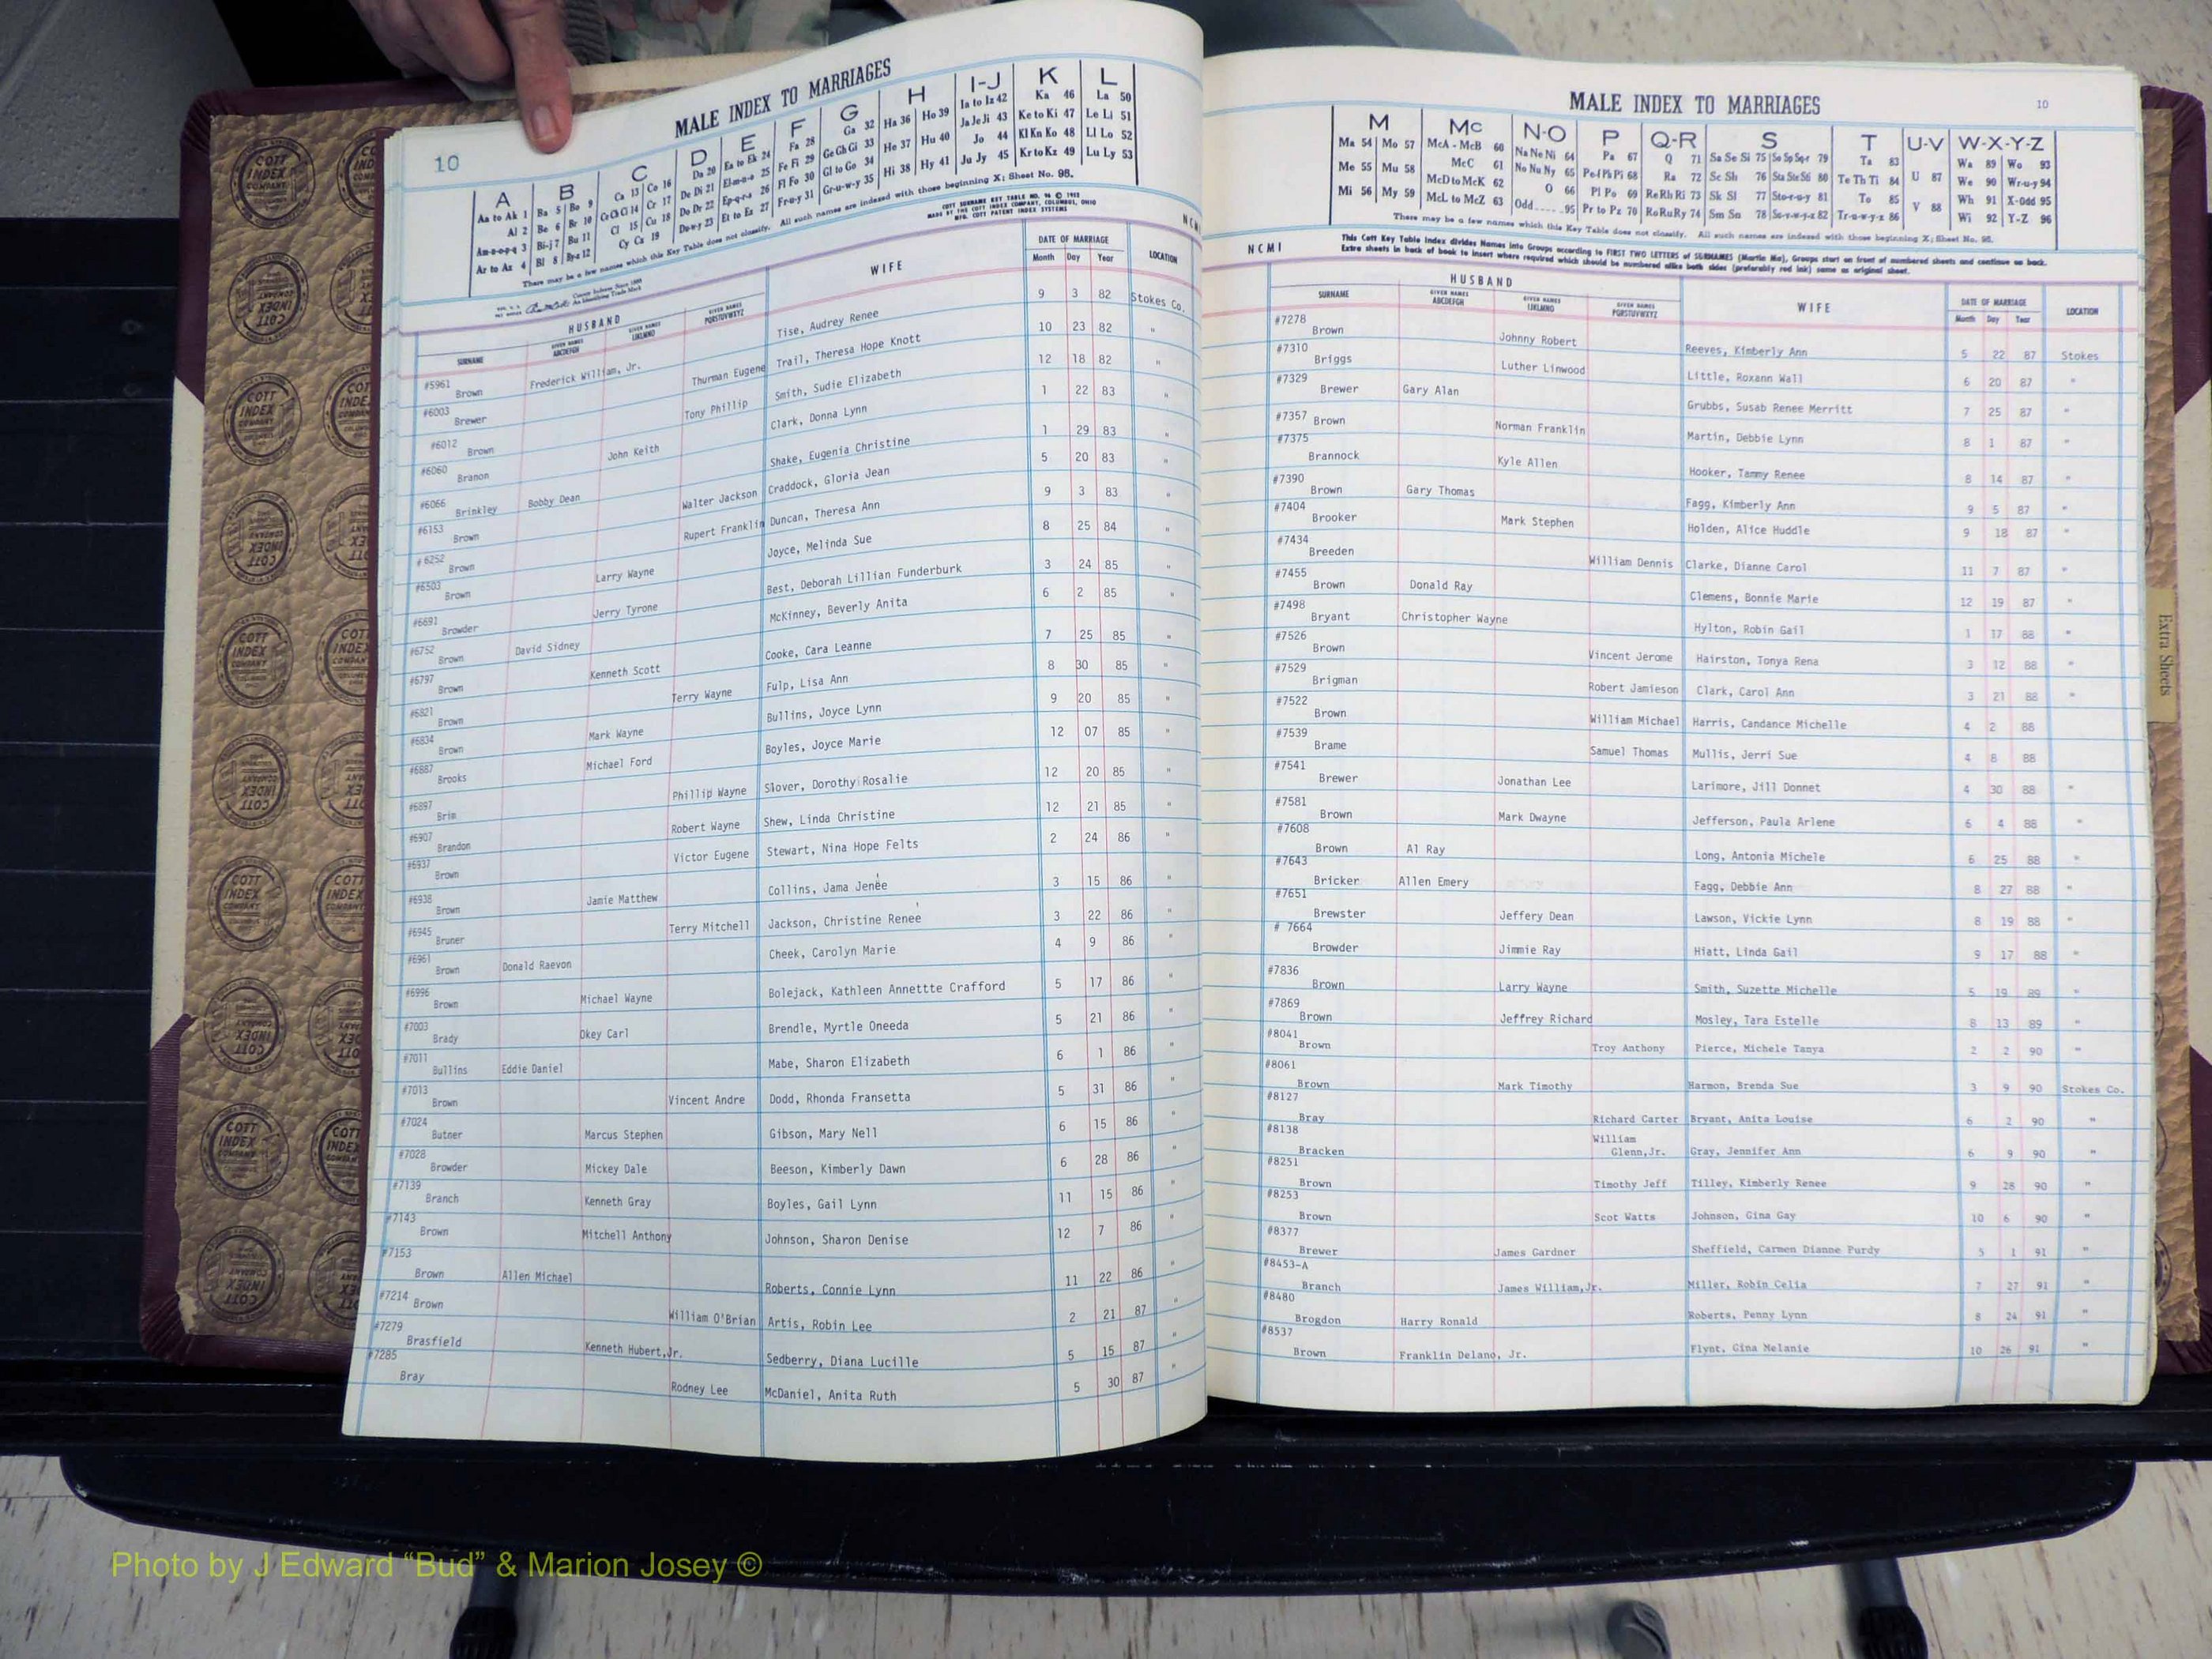 10
MALE INDEX TO MARRIAGES
A B C D E F G H I-J K L
Aa to Ak 1 Ba 5 Bo 9 Ca 13 Co 16 Da 20 Ea to Ek 24 Fa 28 Ga 32 Ha 36 Ho 39 Ia to Iz 42 Ka 46 La 50
Al 2 Be 6 Br 10 Ce Ch Ci 14 Cr 17 De Di 21 El-m-n-o 25 Fe Fi 29 Ge Gh Gi 33 He 37 Hu 40 Ja Je Ji 43 Ke to Ki 47 Le Li 51
Am-n-o-p-q 3 Bi-j 7 Bu 11 Cl 15 Cu 18 Do Dr 22 Ep-q-r-s 26 Fl Fo 30 Gl to Go 34 Hi 38 Hy 41 Jo 44 Kl Kn Ko 48 Ll Lo 52
Ar to Az 4 Bl 8 By-z 12 Cy Cz 19 Du-w-y 23 Et to Ez 27 Fr-u-y 31 Gr-u-w-y 35 Ju Jy 45 Kr to Kz 49 Lu Ly 53
There may be a few names which this Key Table does not classify. All such names are indexed with those beginning X; Sheet No. 98.
COTT SURNAME KEY TABLE NO.
MADE BY THE COTT INDEX COMPANY, COLUMBUS, OHIO
MFG. COTT PATENT INDEX SYSTEMS
County Indexes Since 1888
An Identifying Trade Mark
HUSBAND WIFE DATE OF MARRIAGE LOCATION
SURNAME GIVEN NAMES ABCDEFGH GIVEN NAMES IJKLMNO GIVEN NAMES PQRSTUVWXYZ Month Day Year
#5961 Brown Frederick William, Jr. Tise, Audrey Renee 9 3 82 Stokes Co.
#6003 Brewer Thurman Eugene Trail, Theresa Hope Knott 10 23 82 "
#6012 Brown Tony Phillip Smith, Sudie Elizabeth 12 18 82 "
#6060 Branon John Keith Clark, Donna Lynn 1 22 83 "
#6066 Brinkley Bobby Dean Shake, Eugenia Christine 1 29 83 "
#6153 Brown Walter Jackson Craddock, Gloria Jean 5 20 83 "
#6252 Brown Rupert Franklin Duncan, Theresa Ann 9 3 83 "
#6503 Brown Larry Wayne Joyce, Melinda Sue 8 25 84 "
#6691 Browder Jerry Tyrone Best, Deborah Lillian Funderburk 3 24 85 "
#6752 Brown David Sidney McKinney, Beverly Anita 6 2 85 "
#6797 Brown Kenneth Scott Cooke, Cara Leanne 7 25 85 "
#6821 Brown Terry Wayne Fulp, Lisa Ann 8 30 85 "
#6834 Brown Mark Wayne Bullins, Joyce Lynn 9 20 85 "
#6887 Brooks Michael Ford Boyles, Joyce Marie 12 07 85 "
#6897 Brim Phillip Wayne Slover, Dorothy Rosalie 12 20 85 "
#6907 Brandon Robert Wayne Shew, Linda Christine 12 21 85 "
#6937 Brown Victor Eugene Stewart, Nina Hope Felts 2 24 86 "
#6938 Brown Jamie Matthew Collins, Jama Jenée 3 15 86 "
#6945 Bruner Terry Mitchell Jackson, Christine Renee 3 22 86 "
#6961 Brown Donald Raevon Cheek, Carolyn Marie 4 9 86 "
#6996 Brown Michael Wayne Bolejack, Kathleen Annettte Crafford 5 17 86 "
#7003 Brady Okey Carl Brendle, Myrtle Oneeda 5 21 86 "
#7011 Bullins Eddie Daniel Mabe, Sharon Elizabeth 6 1 86 "
#7013 Brown Vincent Andre Dodd, Rhonda Fransetta 5 31 86 "
#7024 Butner Marcus Stephen Gibson, Mary Nell 6 15 86 "
#7028 Browder Mickey Dale Beeson, Kimberly Dawn 6 28 86 "
#7139 Branch Kenneth Gray Boyles, Gail Lynn 11 15 86 "
#7143 Brown Mitchell Anthony Johnson, Sharon Denise 12 7 86 "
#7153 Brown Allen Michael Roberts, Connie Lynn 11 22 86 "
#7214 Brown William O'Brian Artis, Robin Lee 2 21 87 "
#7279 Brasfield Kenneth Hubert,Jr. Sedberry, Diana Lucille 5 15 87 "
#7285 Bray Rodney Lee McDaniel, Anita Ruth 5 30 87 "
MALE INDEX TO MARRIAGES 10
M Mc N-O P Q-R S T U-V W-X-Y-Z
Ma 54 Mo 57 McA - McB 60 Na Ne Ni 64 Pa 67 Q 71 Sa Se Si 75 So Sp Sq-r 79 Ta 83 U 87 Wa 89 Wo 93
Me 55 Mu 58 McC 61 No Nu Ny 65 Pe-f Ph Pi 68 Ra 72 Sc Sh 76 Sta Ste Sti 80 Te Th Ti 84 V 88 We 90 Wr-u-y 94
Mi 56 My 59 McD to McK 62 O 66 Pl Po 69 Re Rh Ri 73 Sk Sl 77 Sto-r-u-y 81 To 85 Wh 91 X-Odd 95
McL to McZ 63 Odd.....95 Pr to Pz 70 Ro Ru Ry 74 Sm Sn 78 Su-v-w-y-z 82 Tr-u-w-y-z 86 Wi 92 Y-Z 96
There may be a few names which this Key Table does not classify. All such names are indexed with those beginning X; Sheet No. 98.
NCMI
This Cott Key Table Index divides Names into Groups according to FIRST TWO LETTERS of SURNAMES (Martin Ma), Groups start on front of numbered sheets and continue on back.
Extra sheets in back of book to insert where required which should be numbered alike both sides (preferably red ink) same as original sheet.
HUSBAND WIFE DATE OF MARRIAGE LOCATION
SURNAME GIVEN NAMES ABCDEFGH GIVEN NAMES IJKLMNO GIVEN NAMES PQRSTUVWXYZ Month Day Year
#7278 Brown Johnny Robert Reeves, Kimberly Ann 5 22 87 Stokes
#7310 Briggs Luther Linwood Little, Roxann Wall 6 20 87 "
#7329 Brewer Gary Alan Grubbs, Susab Renee Merritt 7 25 87 "
#7357 Brown Norman Franklin Martin, Debbie Lynn 8 1 87 "
#7375 Brannock Kyle Allen Hooker, Tammy Renee 8 14 87 "
#7390 Brown Gary Thomas Fagg, Kimberly Ann 9 5 87 "
#7404 Brooker Mark Stephen Holden, Alice Huddle 9 18 87 "
#7434 Breeden William Dennis Clarke, Dianne Carol 11 7 87 "
#7455 Brown Donald Ray Clemens, Bonnie Marie 12 19 87 "
#7498 Bryant Christopher Wayne Hylton, Robin Gail 1 17 88 "
#7526 Brown Vincent Jerome Hairston, Tonya Rena 3 12 88 "
#7529 Brigman Robert Jamieson Clark, Carol Ann 3 21 88 "
#7522 Brown William Michael Harris, Candance Michelle 4 2 88
#7539 Brame Samuel Thomas Mullis, Jerri Sue 4 8 88
#7541 Brewer Jonathan Lee Larimore, Jill Donnet 4 30 88 "
#7581 Brown Mark Dwayne Jefferson, Paula Arlene 6 4 88 "
#7608 Brown Al Ray Long, Antonia Michele 6 25 88 "
#7643 Bricker Allen Emery Fagg, Debbie Ann 8 27 88 "
#7651 Brewster Jeffery Dean Lawson, Vickie Lynn 8 19 88 "
# 7664 Browder Jimmie Ray Hiatt, Linda Gail 9 17 88 "
#7836 Brown Larry Wayne Smith, Suzette Michelle 5 19 89 "
#7869 Brown Jeffrey Richard Mosley, Tara Estelle 8 13 89 "
#8041 Brown Troy Anthony Pierce, Michele Tanya 2 2 90 "
#8061 Brown Mark Timothy Harmon, Brenda Sue 3 9 90 Stokes Co.
#8127 Bray Richard Carter Bryant, Anita Louise 6 2 90 "
#8138 Bracken William Glenn,Jr. Gray, Jennifer Ann 6 9 90 "
#8251 Brown Timothy Jeff Tilley, Kimberly Renee 9 28 90 "
#8253 Brown Scot Watts Johnson, Gina Gay 10 6 90 "
#8377 Brewer James Gardner Sheffield, Carmen Dianne Purdy 5 1 91 "
#8453-A Branch James William,Jr. Miller, Robin Celia 7 27 91 "
#8480 Brogdon Harry Ronald Roberts, Penny Lynn 8 24 91 "
#8537 Brown Franklin Delano, Jr. Flynt, Gina Melanie 10 26 91 "
Extra Sheets
COTT INDEX COMPANY
Photo by J Edward “Bud” & Marion Josey ©